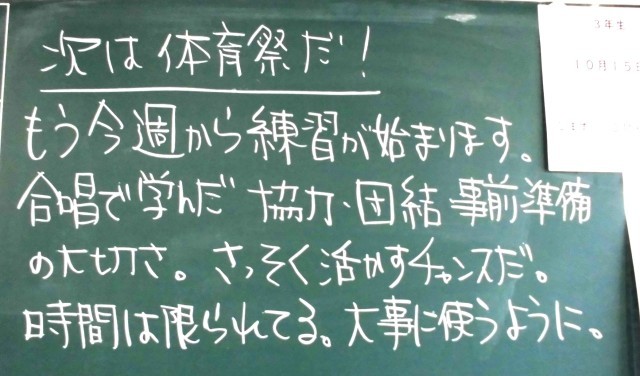 次は体育祭だ!
もう今週から練習が始まります。
合唱で学んだ 協力・団結 事前準備
の大切さ。さっそく活かすチャンスだ。
時間は限られてる。大事に使うように。
3年生
10月15日